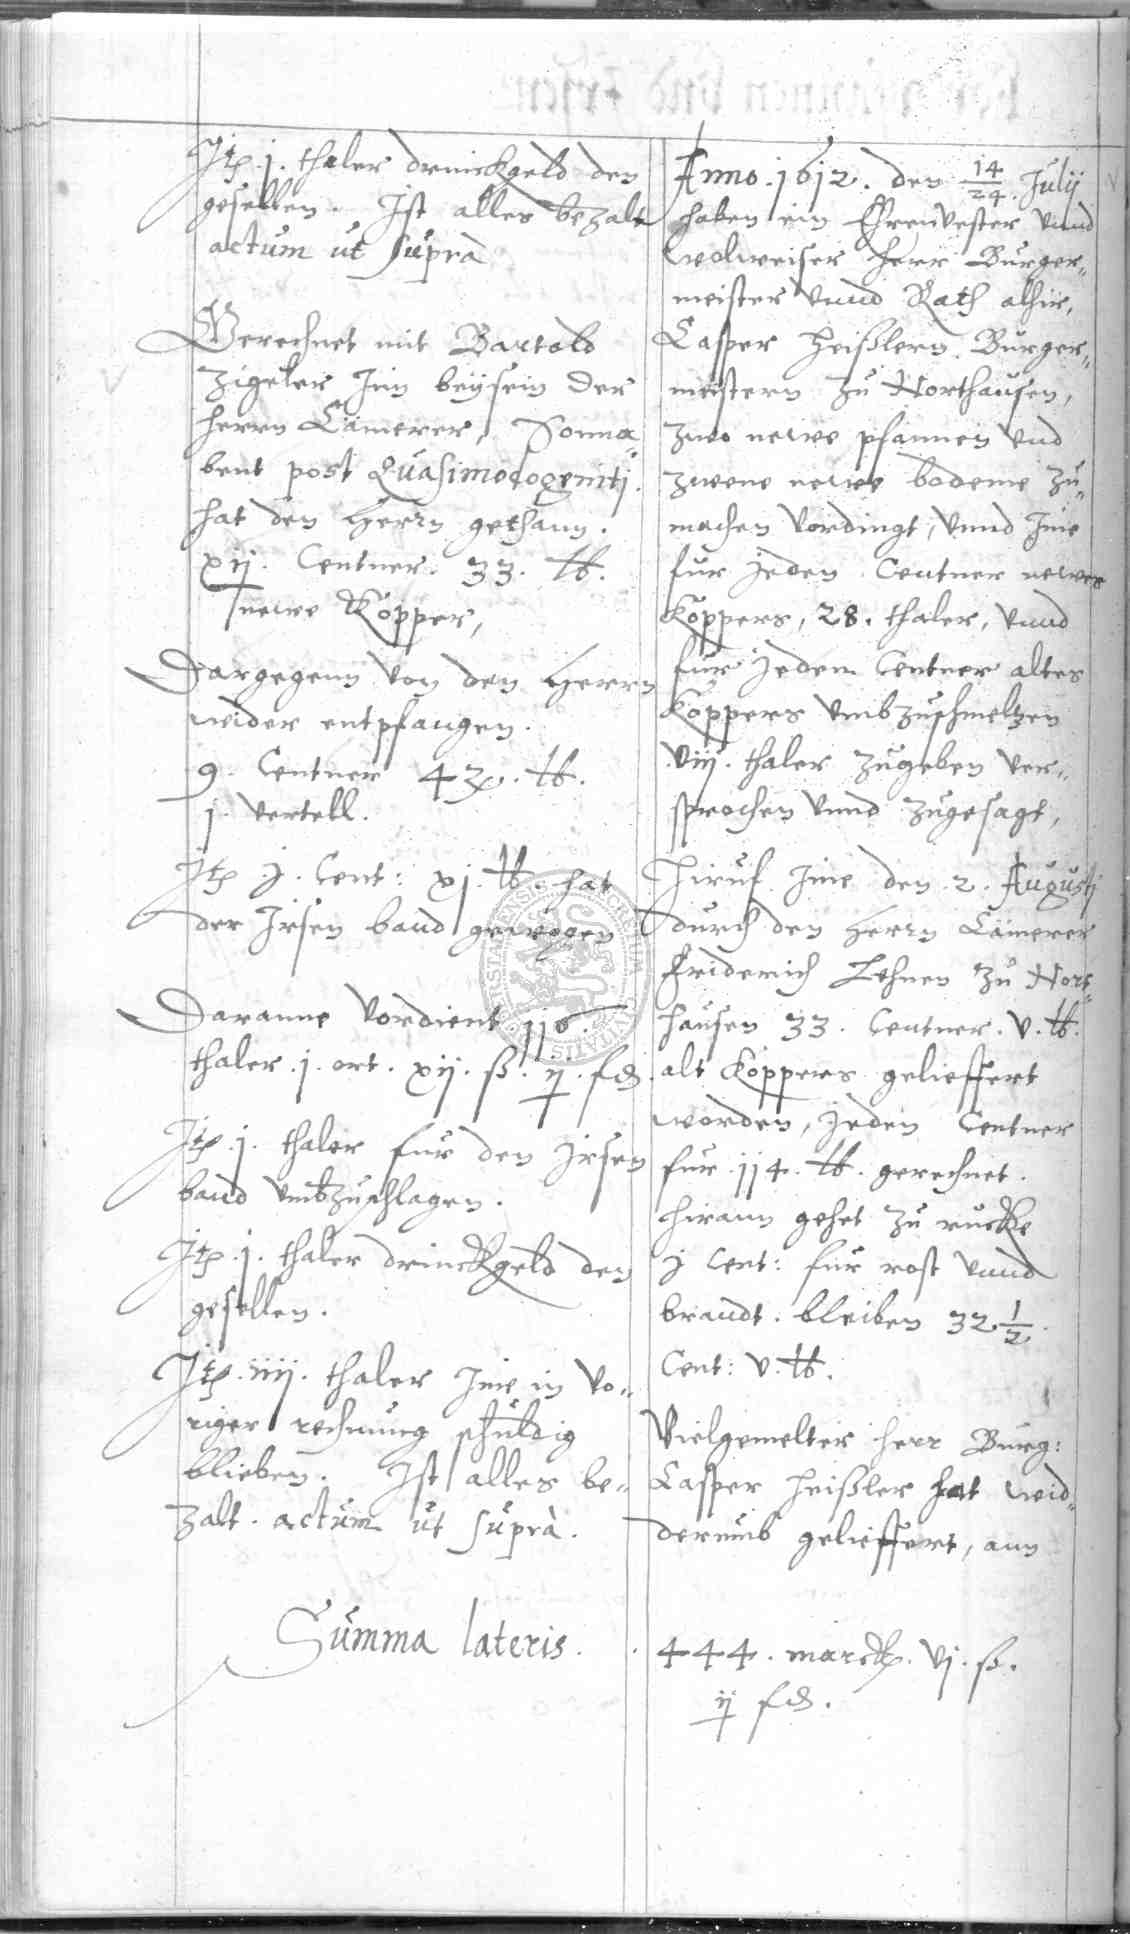 Itȩ .j. thaler drinckgeld den
gesellen. Ist alles bezalt
actum ut suprà
Gerechnet mit Bartold
Zigeler Inn beysein der
herrn Cämerer, Sonna„
bent post Quasimodogenitj.
hat den Herrn gethann.
xij. Centner. 33. ℔.
newe Köpper,
Dargegenn von den Herrn
wider entpfangen.
9. Centner 42. ℔.
j. vertell.
Itȩ .j. Cent: xj. ℔. hat
der Irsen band gewogen
Daranne vordient 116.
thaler .j. ort. xij. ß. ij. f₰.
Itȩ .j. thaler fur den Irsen
band umbzuschlagen.
Itȩ .j. thaler drinckgeld den
gesellen.
Itȩ .iiij. thaler Ime in vo„
riger rechnung schuldig
blieben. Ist alles be„
zalt. actum ut suprà.
Anno .1612. den 14/24. Julij
haben ein Ehrenvester unnd
wolweiser Herr Burger„
meister unnd Rath alhir,
Casper Heißlern Burger„
meistern zu Northausen,
zwo newe pfannen und
zweene newe bodeme zu„
machen vordingt, unnd Ime
fur jeden Centner newes
Köppers, 28. thaler, unnd
fur jedem Centner altes
Köppers umbzuschmeltzen
viij. thaler zugeben ver„
sprochen unnd zugesagt,
Hiruf Ime den 2. Augustj
durch den Herrn Cämerer
Friderich Lehnen zu Nort„
hausen 33. Centner. v. ℔.
alt Köppers gelieffert
worden, jeden Centner
fur 114. ℔. gerechnet.
hirann gehet zu rucke
Cent: fur rost unnd
brandt. bleiben 32 1/2.
Cent: v. ℔.
Vielgemelter Herr Burg:
Casper Heißler hat wid„
derumb gelieffert, ann
Summa lateris. 444. marck. vj. ß.
ij f₰.
SECRETUM CIVITATIS